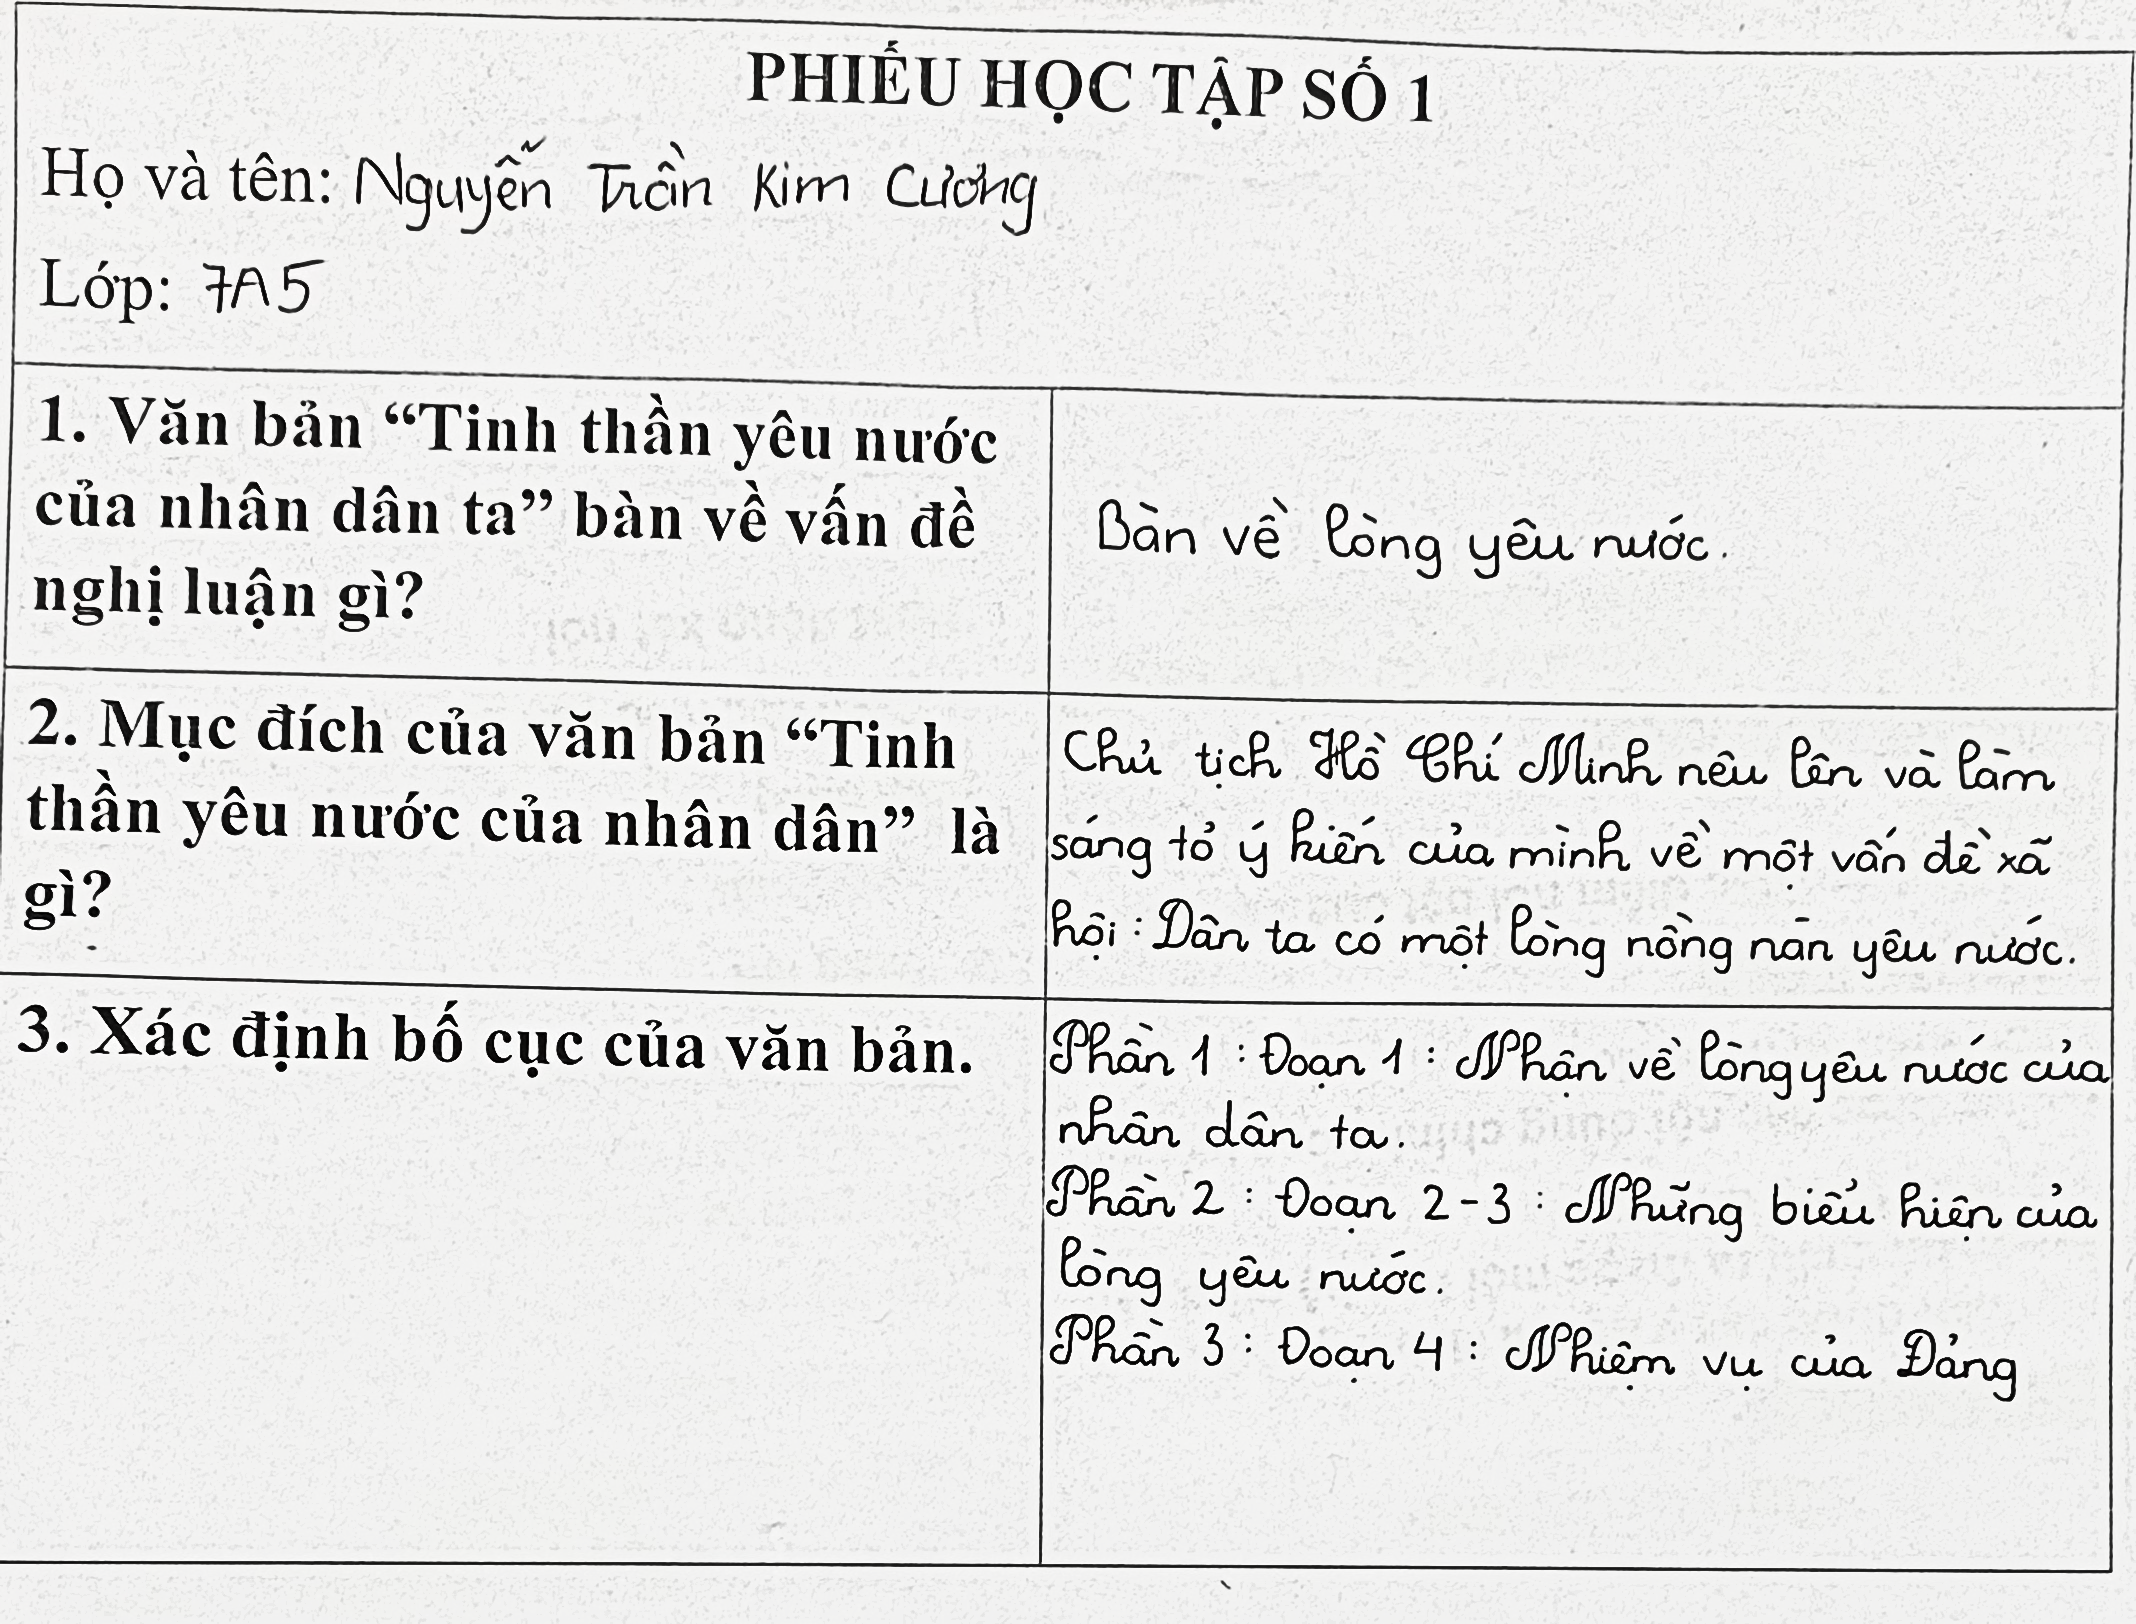 PHIẾU HỌC TẬP SỐ 1
Họ và tên: Nguyễn Trần Kim Cương
Lớp: 7A5
1. Văn bản “Tinh thần yêu nước
của nhân dân ta” bàn về vấn đề
nghị luận gì?
Bàn về lòng yêu nước.
2. Mục đích của văn bản “Tinh
thần yêu nước của nhân dân” là
gì?
Chủ tịch Hồ Chí Minh nêu lên và làm
sáng tỏ ý kiến của mình về một vấn đề xã
hội : Dân ta có một lòng nồng nàn yêu nước.
3. Xác định bố cục của văn bản.
Phần 1 : Đoạn 1 : Nhận về lòng yêu nước của
nhân dân ta.
Phần 2 : Đoạn 2 - 3 : Những biểu hiện của
lòng yêu nước.
Phần 3 : Đoạn 4 : Nhiệm vụ của Đảng